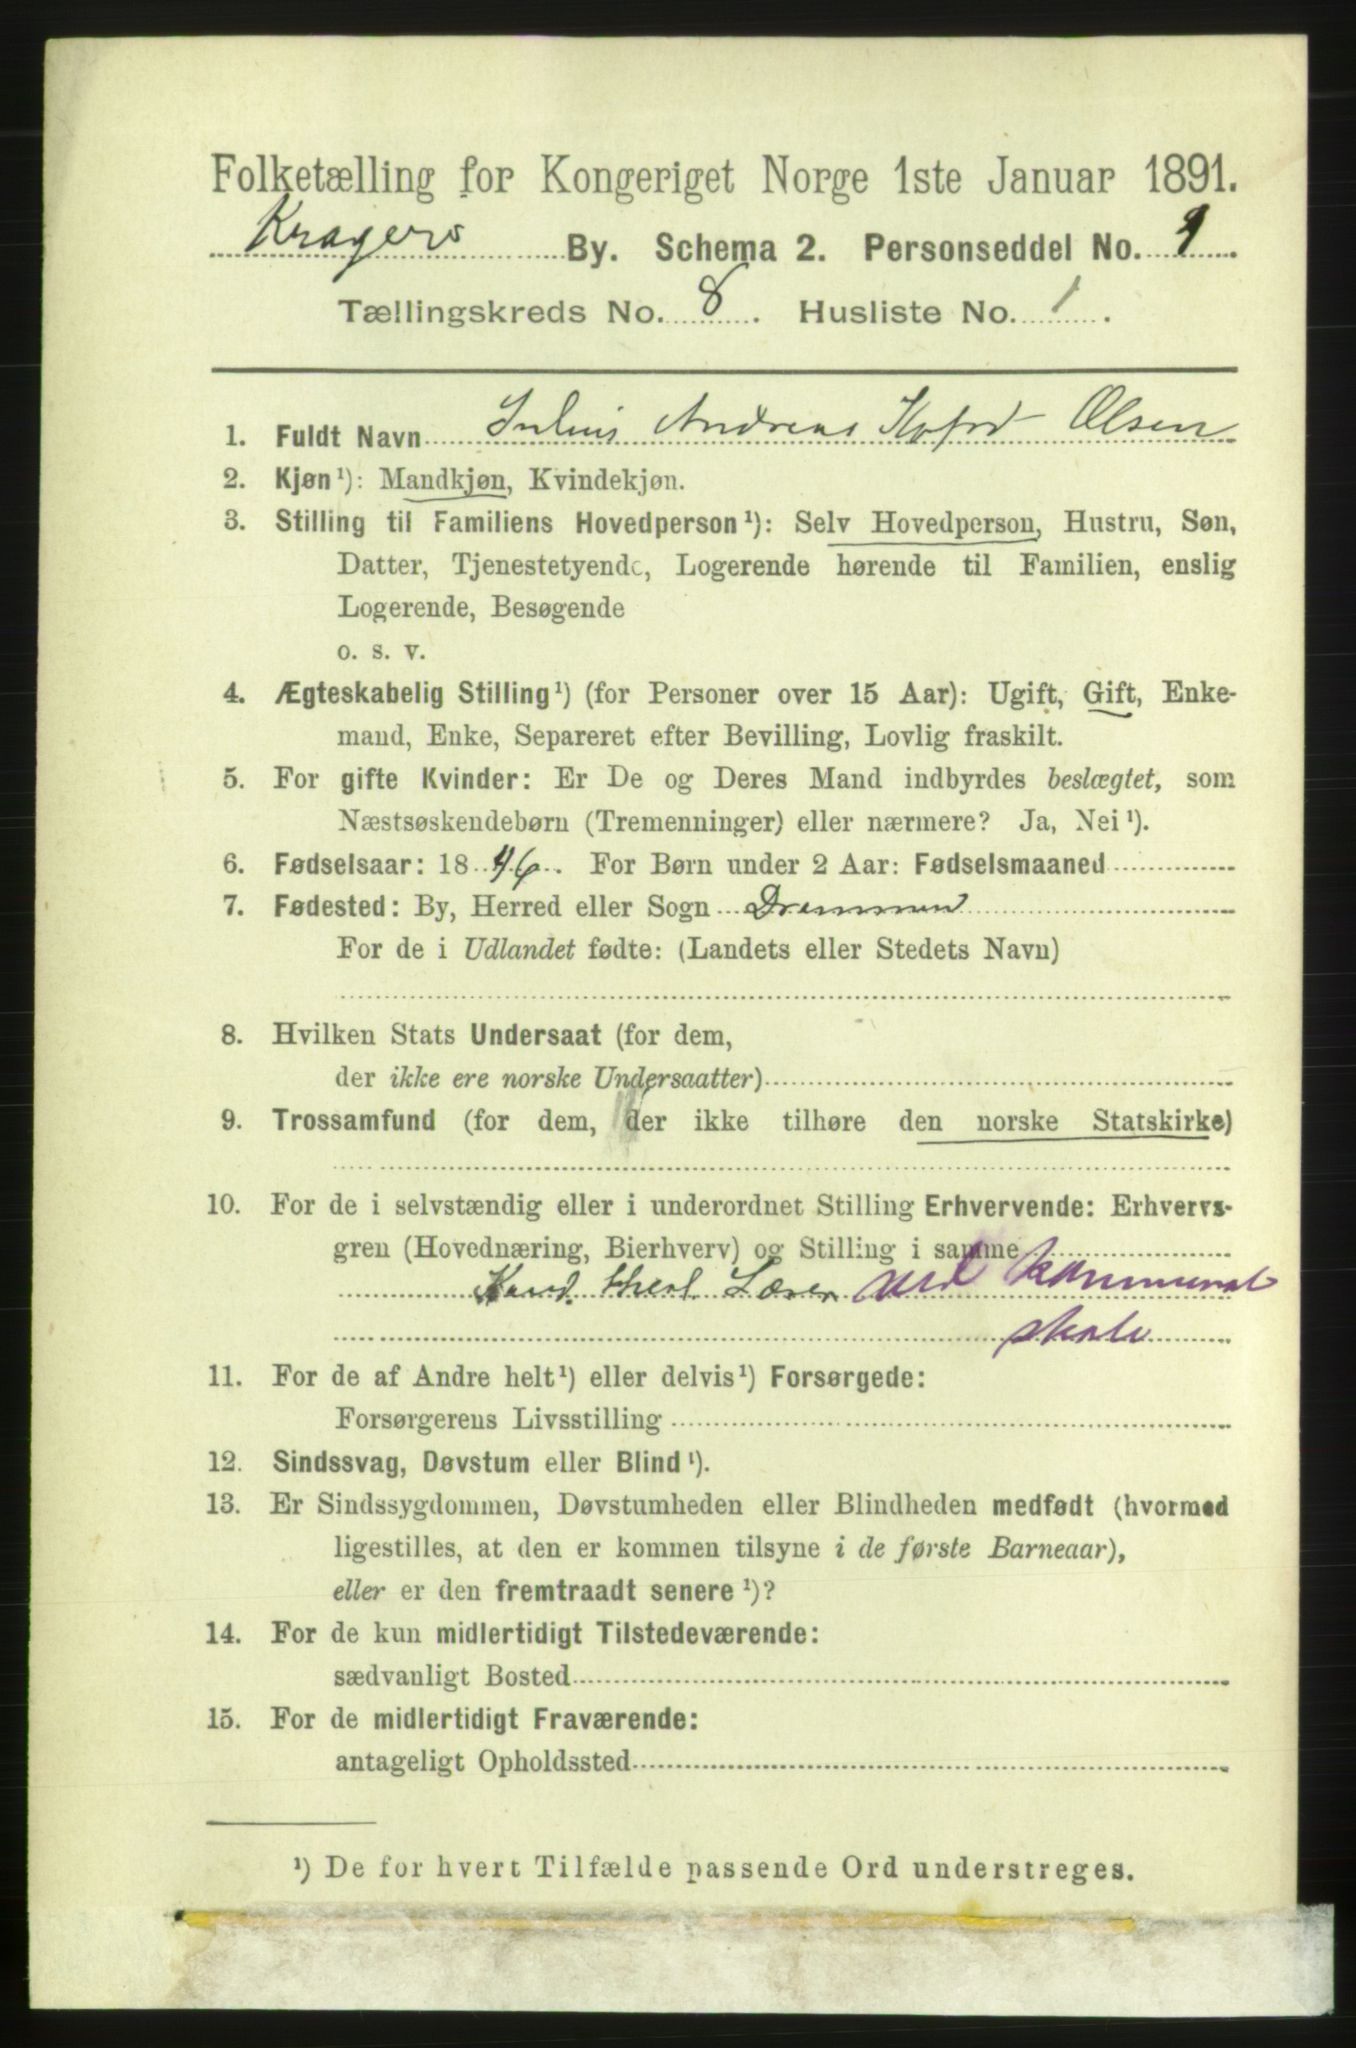 Folketælling for Kongeriget Norge 1ste Januar 1891.
Kragerø By. Schema 2. Personseddel No. 1.
Tællingskreds No. 8. Husliste No. 1.
1. Fuldt Navn Julius Andreas Olsen
2. Kjøn¹): Mandkjøn, Kvindekjøn.
3. Stilling til Familiens Hovedperson¹): Selv Hovedperson, Hustru, Søn,
Datter, Tjenestetyende, Logerende hørende til Familien, enslig
Logerende, Besøgende
o. s. v.
4. Ægteskabelig Stilling¹) (for Personer over 15 Aar): Ugift, Gift, Enke-
mand, Enke, Separeret efter Bevilling, Lovlig fraskilt.
5. For gifte Kvinder: Er De og Deres Mand indbyrdes beslægtet, som
Næstsøskendebørn (Tremenninger) eller nærmere? Ja, Nei¹).
6. Fødselsaar: 1846. For Børn under 2 Aar: Fødselsmaaned
7. Fødested: By, Herred eller Sogn Drammen
For de i Udlandet fødte: (Landets eller Stedets Navn)
8. Hvilken Stats Undersaat (for dem,
der ikke ere norske Undersaatter)
9. Trossamfund (for dem, der ikke tilhøre den norske Statskirke)
10. For de i selvstændig eller i underordnet Stilling Erhvervende: Erhvervs-
gren (Hovednæring, Bierhverv) og Stilling i samme
Kand. theol. Lærer ved kommunal
skole
11. For de af Andre helt¹) eller delvis¹) Forsørgede:
Forsørgerens Livsstilling
12. Sindssvag, Døvstum eller Blind¹).
13. Er Sindssygdommen, Døvstumheden eller Blindheden medfødt (hvormed
ligestilles, at den er kommen tilsyne i de første Barneaar),
eller er den fremtraadt senere¹)?
14. For de kun midlertidigt Tilstedeværende:
sædvanligt Bosted
15. For de midlertidigt Fraværende:
antageligt Opholdssted
¹) De for hvert Tilfælde passende Ord understreges.